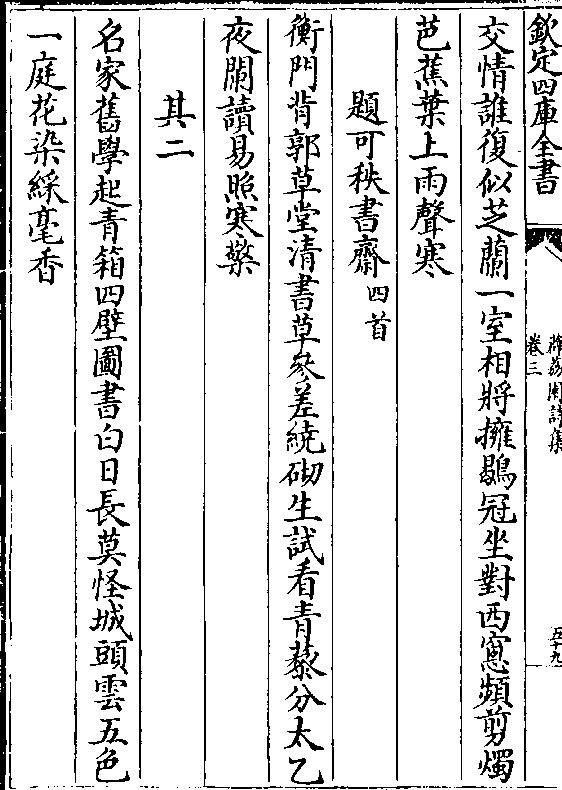 欽定四庫全書
薜荔園詩集
卷三
五十九
交情誰復似芝蘭一室相將擁鶡冠坐對西窻頻剪燭
芭蕉葉上雨聲寒
題可秩書齋四首
衡門背郭草堂清書草參差繞砌生試看青藜分太乙
夜闌讀易照寒檠
其二
名家舊學起青箱四壁圖書白日長莫怪城頭雲五色
一庭花染綵毫香